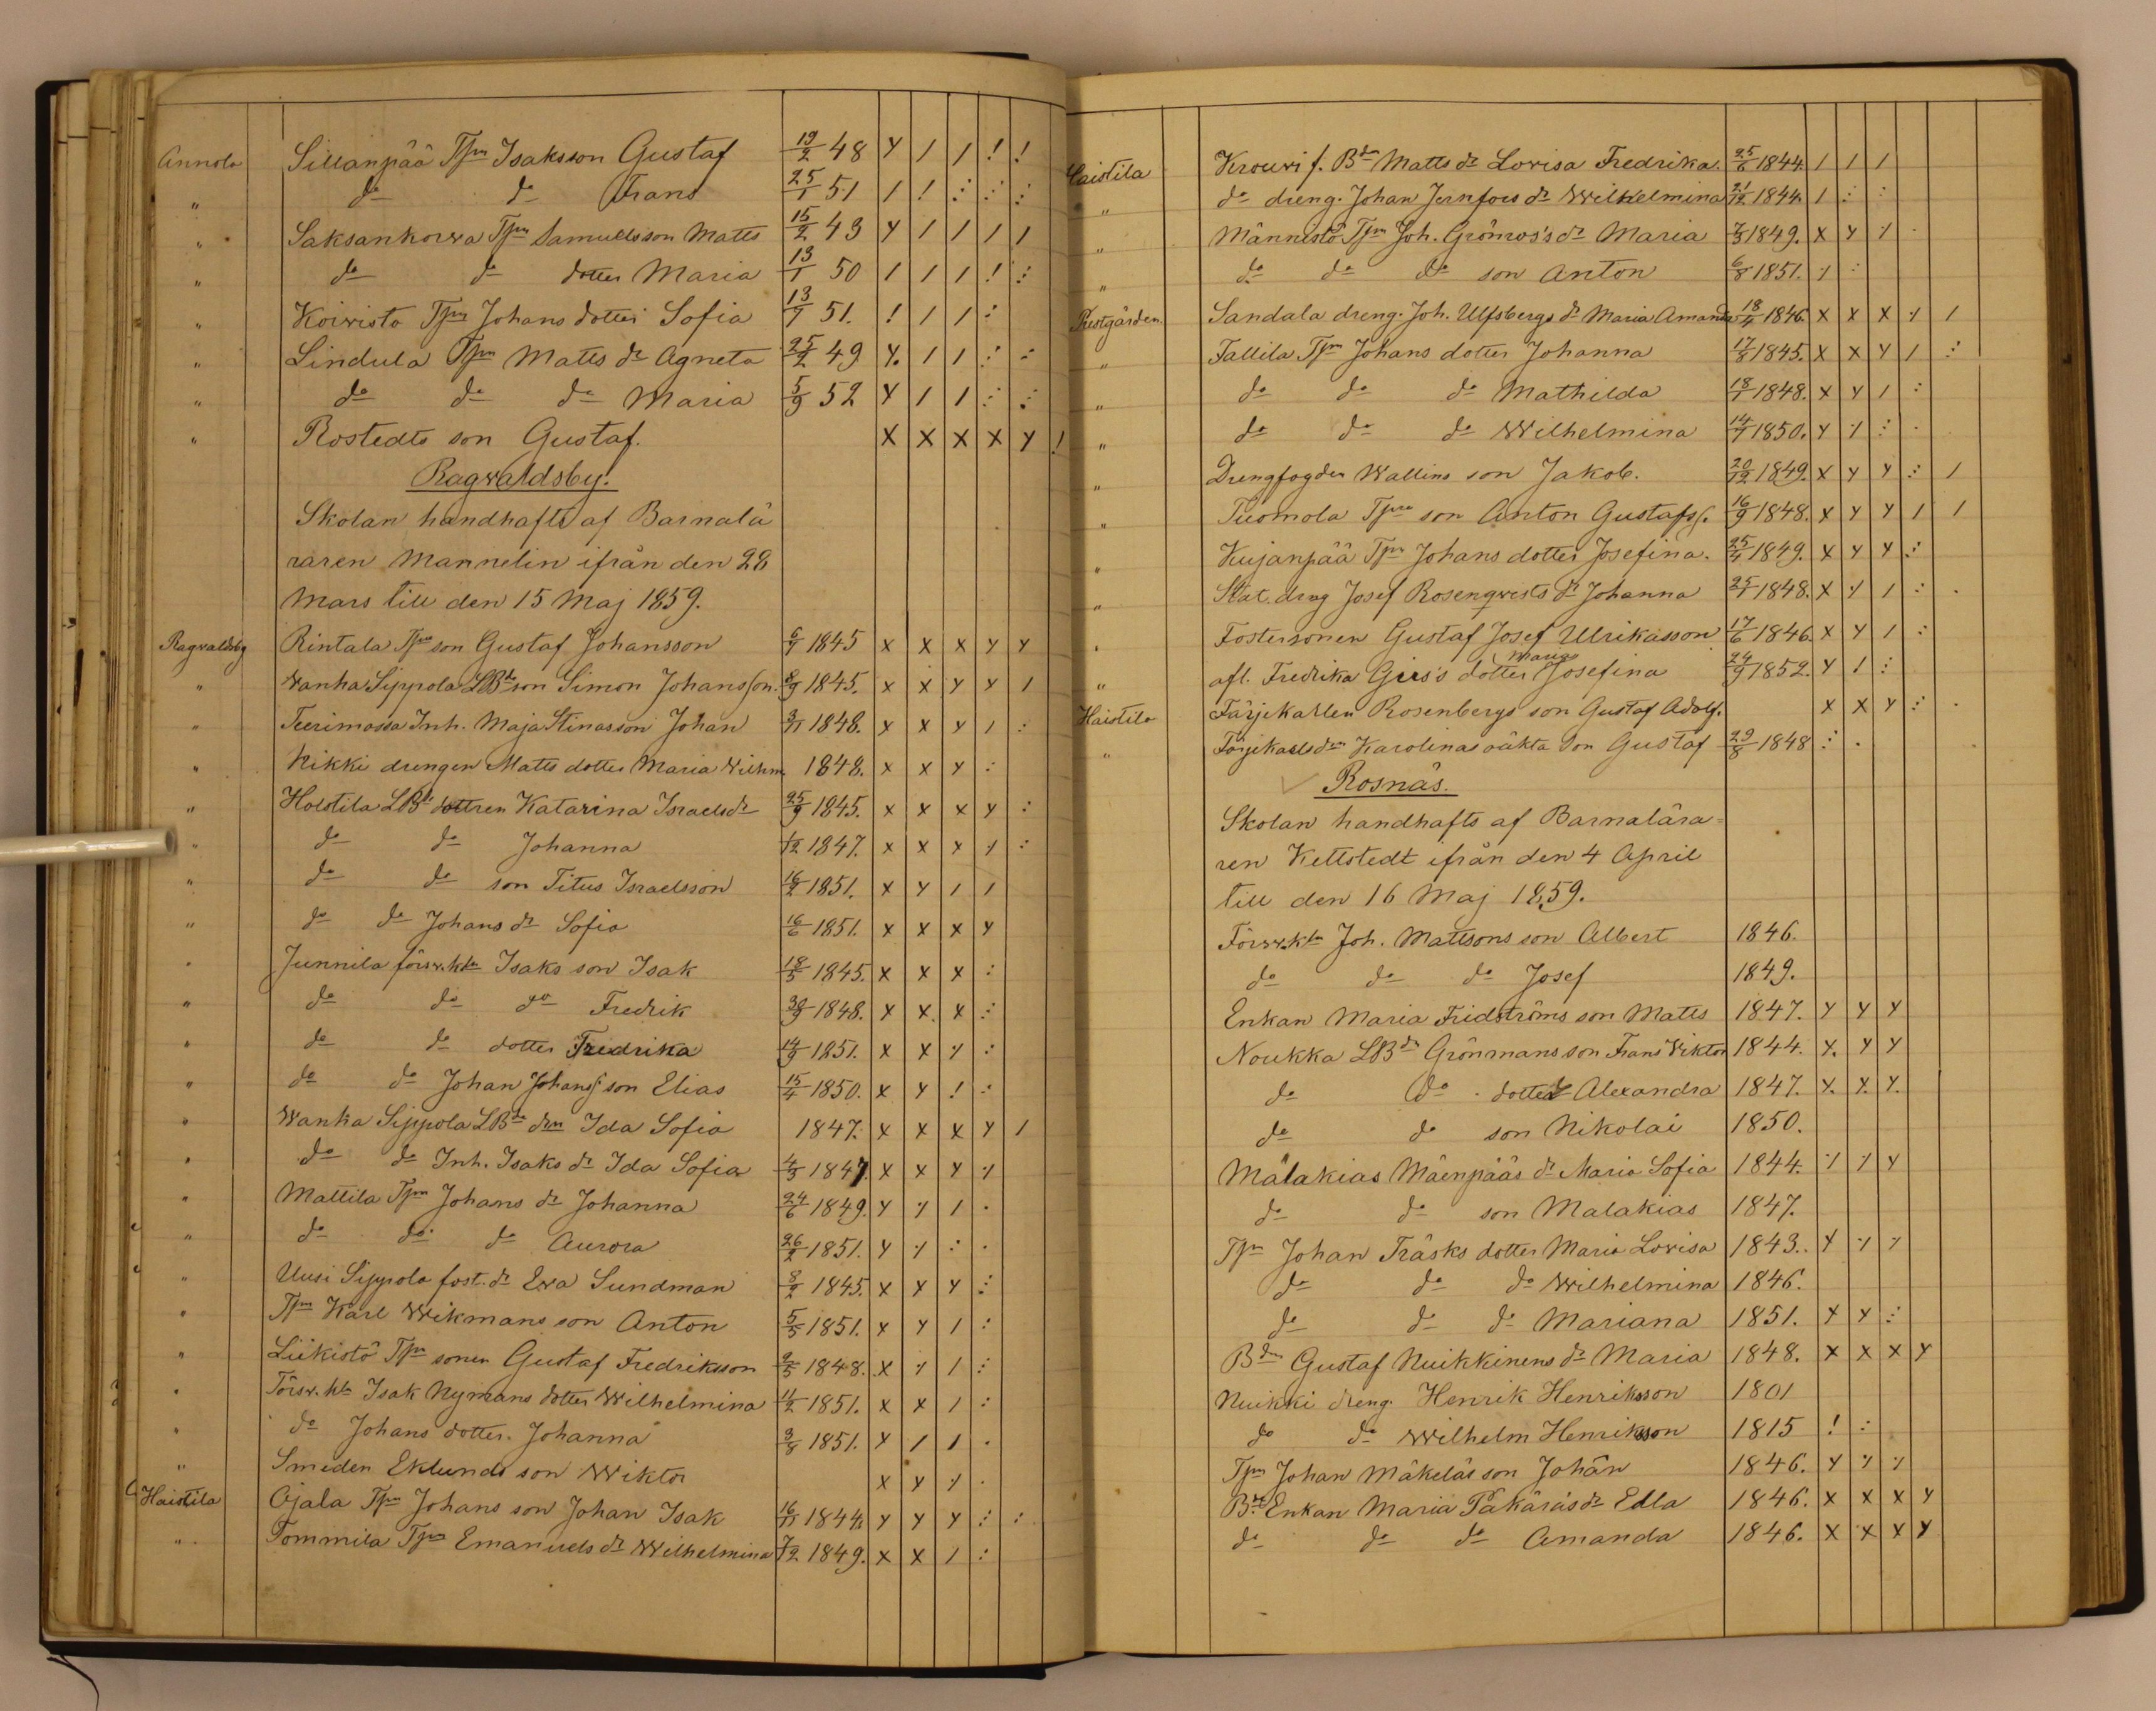 Annola Sillanpää Tpn Isaksson Gustaf 19/2 48 Y / / ! !
" do do Frans 25/1 51 / ! ⋮ ⋮ ⋮
" Saksankorwa Tpn Samuelsson Matts 15/2 43 Y / / / /
" do do dotter Maria 13/1 50 / / / ! ⋮
" Koivisto Tpn Johans dotter Sofia 13/7 51. ! / / :
" Lindula Tpn Matts dr Agneta 25/2 49 Y. / / ⋮ :
" do do do Maria 5/9 52 Y / / ⋮ ⋮
" Rostedts son Gustaf. X X X X Y !
Ragvaldsby.
Skolan handhafts af Barnalä
raren Mannelin ifrån den 28
Mars till den 15 Maj 1859.
Ragvaldsby Rintala Tpns son Gustaf Johansson 6/7 1845 X X X Y Y
" Wanha Sippola LBds son Simon Johansson. 8/9 1845. X X Y Y /
" Teerimossa Inh. Maja Stinas son Johan 3/11 1848. X X Y / :
" Nikki drengen Matts dotter Maria Vilhm 1848. X X Y :
" Holstila LBds dottren Katarina Israelsdr 25/9 1845. X X X Y :
" do do Johanna 1/12 1847. X X X ⁒ :
" do do son Titus Israelsson 16/2 1851. X Y / /
" do do Johans dr Sofia 16/6 1851. X X X Y
" Junnila försv.kln Isaks son Isak 18/5 1845. X X X :
" do do do Fredrik 30/9 1848. X X. X ⋮
" do do dotter Fredrika 14/9 1851. X X ⁒ :
" do do Johan Johanss son Elias 15/4 1850. X Y ! :
" Wanha Sippola LBds drn Ida Sofia 1847. X X X Y /
" do do Inh. Isaks dr Ida Sofia 4/5 1847. X X Y ⁒
" Mattila Tpn Johans dr Johanna 24/6 1849. Y ⁒ / .
" do do do Aurora 26/2 1851. Y ⁒ : .
" Uusi Sippola fost. dr Ewa Sundman 8/2 1845. X X Y ⋮
" Tpn Karl Wikmans son Anton 5/5 1851. X Y / :
" Liikistö Tpn sonen Gustaf Fredriksson 2/5 1848. X ⁒ / :
" Försv. kln Isak Nymans dotter Wilhelmina 11/2 1851. X X / :
" do Johans dotter Johanna 3/8 1851. Y / / .
" Smeden Eklunds son Wiktor X Y ⁒ .
Haistila Ojala Tpn Johans son Johan Isak 16/11 1844. Y Y Y : :
" Tommila Tpn Emanuels dr Wilhelmina 7/12 1849. X X / :
Haistila Krouvi f. Bdn Matts dr Lovisa Fredrika. 25/6 1844. / / /
" do dreng. Johan Jernfors dr Wilhelmina 21/12 1844. / : :
" Männistö Tpn Joh. Grönros's dr Maria 7/3 1849. X Y ⁒ .
" do do do son Anton 6/8 1851. ⁒ :
Prestgården Sandala dreng. Joh. Ulfsbergs dr Maria Amanda 18/4 1846. X X X ⁒ /
" Fallila Tpn Johans dotter Johanna 17/8 1845. X X Y / ⋮
" do do do Mathilda 18/1 1848. X Y / :
" do do do Wilhelmina 14/7 1850. Y ⁒ ⋮ .
" Drengfogden Wallins son Jakob. 20/12 1849. X Y Y ⋮ /
" Tuomola Tpns son Anton Gustafss. 16/9 1848. X Y Y / /
" Kujanpää Tpn Johans dotter Josefina. 25/4 1849. X Y Y ⋮
" Stat. drng Josef Rosenqvists dr Johanna 25/1 1848. X ⁒ / : .
" Fostersonen Gustaf Josef Ulrikasson 17/6 1846. X Y / :
" afl. Fredrika Girs's dotter Maria Josefina 24/9 1852. Y / :
Haistila Färjekarlen Rosenbergs son Gustaf Adolf. X X Y ⋮ .
" Färjekarls drn Karolinas oäkta son Gustaf 29/8 1848 ⋮ .
Rosnäs.
Skolan handhafts af Barnalära=
ren Kettstedt ifrån den 4 April
till den 16 Maj 1859.
Försv.kln Joh. Mattsons son Albert 1846.
do do do Josef 1849.
Enkan Maria Fridströms son Matts 1847. Y Y Y
Noukka LBdn Grönmans son Frans Viktor 1844. Y. Y Y
do do dotter Alexandra 1847. Y. Y. Y.
do do son Nikolai 1850.
Malakias Mäenpääs dr Maria Sofia 1844. ⁒ ⁒ Y
do do son Malakias 1847.
Tpn Johan Träsks dotter Maria Lovisa 1843. Y ⁒ ⁒
do do do Wilhelmina 1846.
do do do Mariana 1851. Y Y :
Bdn Gustaf Nuikkinens dr Maria 1848. X X X Y
Nuikki dreng. Henrik Henriksson 1801
do do Wilhelm Henriksson 1815 ! :
Tpn Johan Mäkeläs son Johan 1846. Y ⁒ ⁒
Bde Enkan Maria Pakäräs dr Edla 1846. X X X Y
do do do Amanda 1846. X X X Y